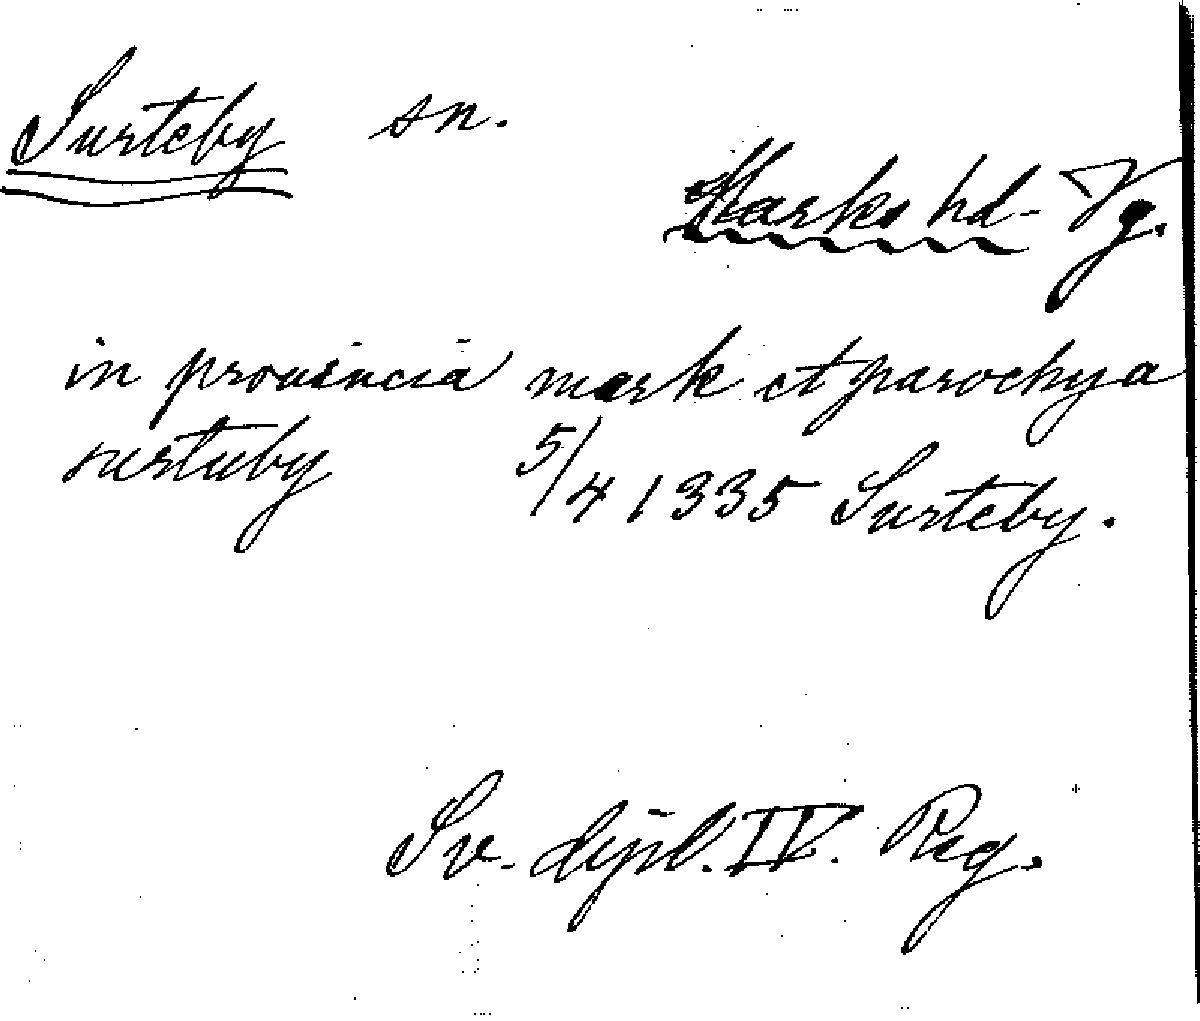 Surteby sn.
Marks hd- Vg.
in prouincia mark et parochya
surtuby 5/4 1335 Surteby.
Sv. dipl. IV. Reg.